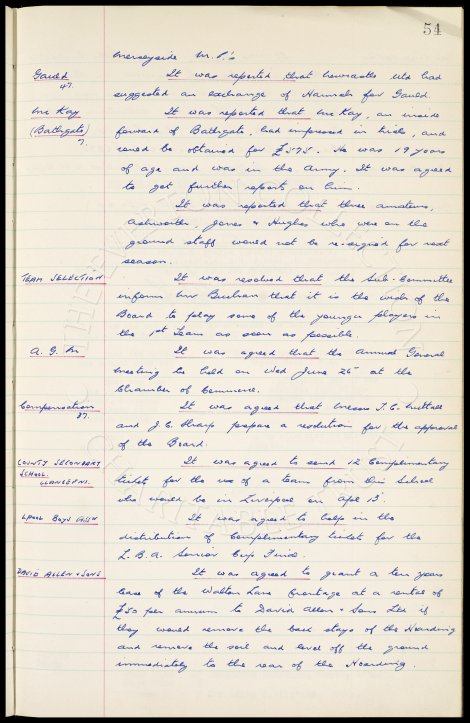 54
Merseyside M.P.'s
Gauld
47.
It was reported that Newcastle Utd had
suggested an exchange of Hannah for Gauld.
McKay
(Bathgate)
7.
It was reported that McKay, an inside
forward of Bathgate, had impressed in trials, and
could be obtained for £575. He was 19 years
of age and was in the Army. It was agreed
to get further reports on him.
It was reported that three amateurs,
Ashworth, Jones & Hughes who were on the
ground staff would not be re-signed for next
season.
TEAM SELECTION
It was resolved that the Sub-Committee
inform Mr Buchan that it is the wish of the
Board to play some of the younger players in
the 1st Team as soon as possible.
A.G.M
It was agreed that the Annual General
Meeting be held on Wed June 25th at the
Chamber of Commerce.
Compensation
37.
It was agreed that Messrs T.C. Nuttall
and J.C. Sharp prepare a resolution for the approval
of the Board.
COUNTY SECONDARY
SCHOOL.
LLANGEFNI.
It was agreed to send 12 Complimentary
tickets for the use of a team from this School
who would be in Liverpool on Apl
LPOOL BOYS ASSN
It was agreed to help in the
distribution of Complimentary tickets for the
L.B.A. Senior Cup Finals.
DAVID ALLEN & SONS
It was agreed to grant a ten years
lease of the Walton Lane frontage at a rental of
£50 per annum to David Allen & Sons Ltd if
they would remove the back stays of the Hoarding
and remove the soil and level off the ground
immediately to the rear of the Hoarding.